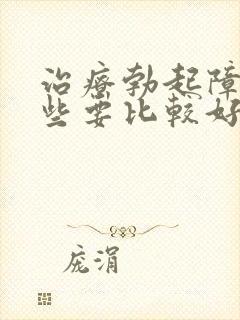 治療勃起障
些要比較好
庞涓